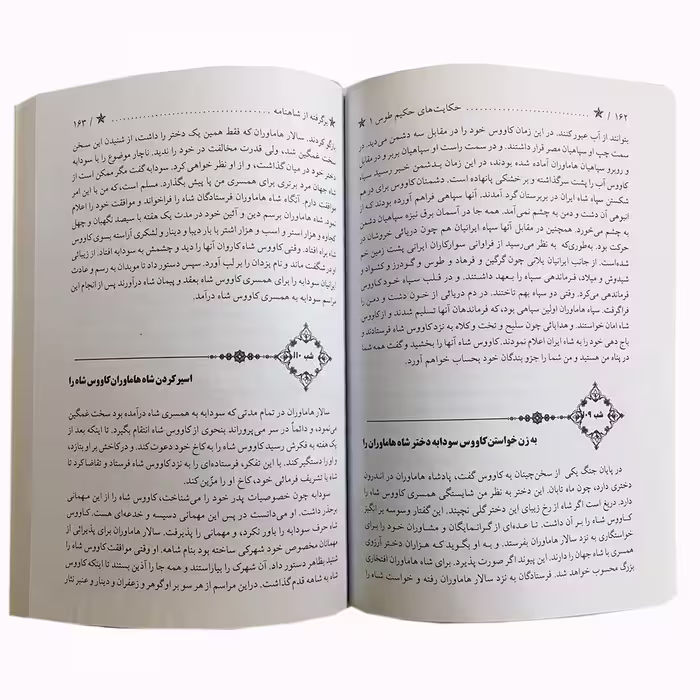 ۱۶۲ / ★ حکایت‌های حکیم طوس ۱
بتوانند از آب عبور کنند. در این زمان کاووس خود را در مقابل سه دشمن می‌دید. در
سمت چپ او سپاهیان مصر قرار داشتند. و در سمت راست او سپاهیان بربر و در
روبرو سپاهیان هاماوران آماده شده بودند. در همین زمان بدشمن خبر رسید سپاه
کاووس آب را پشت سر گذاشته و بر خشکی پا نهاده است. دشمنتان کاووس برای در هم
شکستن سپاه شاه ایران در بربرستان گرد آمدند. آنها سپاهی فراهم آورده بودند که از
انبوهی آن دشت و دمن به چشم نمی‌آمد. همه جا در آسمان برق نیزه سپاهیان دشمن
به چشم می‌خورد. همچنین در مقابل آنها سپاه ایرانیان هم چون دریائی خروشان در
حرکت بود. به‌طوری‌که به نظر می‌رسید از فراوانی سوارکاران ایرانی پشت زمین خم
شده‌است. از جانب ایرانیان پلانی چون گرگین و فرهاد و طوس و گودرز و کشواد و
شیدوش و میلاد، فرماندهی سپاه را بعهد داشتند. و در قلب سپاه خود کاووس
فرماندهی می‌کرد. وقتی دو سپاه بهم تاختند. در دم دریائی از خون دشت و دمن را
فراگرفت. سپاه هاماوران اولین سپاهی بود، که فرماندهان آنها تسلیم شدند و از کاووس
شاه امان خواستند. و هدایائی چون سلیح و تخت و کلاه به نزد کاووس فرستادند و
باج دهی خود را به شاه ایران اعلام نمودند. کاووس شاه آنها را بخشید و گفت همه شما
در پناه من هستید و من شما را جزو بندگان خود بحساب خواهم آورد.
شب ۱۰۹
به زن خواستن کاووس سودابه دختر شاه هاماوران را
در پایان جنگ یکی از سخن‌چینان به کاووس گفت، پادشاه هاماوران در اندرون
دختری دارد، چون ماه تابان. این دختر به نظر من شایستگی همسری کاووس شاه را
دارد. دریغ است اگر شاه از رخ زیبای این دختر گلی نچیند. این گفتار وسوسه بر بیگز
کاووس شاه را بر آن داشت. تا عده‌ای از گرانمایگان و مشاوران خود را به
خواستگاری به نزد سالار هاماوران بفرستد. و به او بگوید که هزاران دختر آرزوی
همسری با شاه جهان را دارند. این پیوند اگر صورت پذیرد. برای شاه هاماوران افتخاری
بزرگ محسوب خواهد شد. فرستادگان به نزد سالار هاماوران رفته و خواست شاه را
برگرفته از شاهنامه ★ / ۱۶۳
بازگو کردند. سالار هاماوران که فقط همین یک دختر را داشت، از شنیدن این سخن
سخت غمگین شد، ولی قدرت مخالفت در خود را ندید. ناچار موضوع را با سودابه
دختر خود در میان گذاشت، و از او نظر خواهی کرد. سودابه گفت مگر چه کسی از
شاه جهان مرد برتری برای همسری من پا پیش بگذارد. مسلم است، که من با این امر
موافقم. آنگاه شاه هاماوران فرستادگان شاه را فراخواند و موافقت خود را اعلام
نمود. شاه هاماوران برسم دین و آئین خود در مدت یک هفته با سیصد نگهبان و چهل
کجاوه و هزار استر و اسب و هزار اشتر با بار دیبا و دینار و لشکری آراسته بسوی کاووس
شاه براه افتاد. وقتی کاووس شاه کاروان آنها را دید و چشمش به سودابه افتاد. از زیبائی
او در شگفت ماند و نام یزدان را بر لب آورد. سپس دستور داد تا موبدان به رسم و عادت
ایرانیان سودابه را برای همسری کاووس شاه بعقد و پیمان شاه درآورند پس از انجام این
مراسم سودابه به همسری کاووس شاه درآمد.
شب ۱۱۰
اسیر کردن شاه هاماوران کاووس شاه را
سالار هاماوران در تمام مدتی که سودابه به همسری شاه درآمده بود سخت غمگین
بود، و دائماً در سر می‌پروراند بنحوی از کاووس شاه انتقام بگیرد. تا اینکه بعد از
یک هفته به فکرش رسید کاووس شاه را به کاخ خود دعوت کند. و درکاخش بر او بتازد،
و او را دستگیر کند. با این تفکر، فرستاده‌ای را به نزد کاووس شاه فرستاد و تقاضا کرد تا
شاه با تشریف فرمائی خود، کاخ او را مزّین کند.
سودابه چون خصوصیات پدر خود را می‌شناخت، کاووس شاه را از این مهمانی
برحذر داشت. او می‌دانست در پس این مهمانی دسیسه و خدعه‌ای است. کاووس
شاه حرف سودابه را باور نکرد، و مهمانی را پذیرفت. سالار هاماوران برای پذیرائی از
مهمانان مخصوص خود شهرکی ساخته بود بنام شاهه. او وقتی موافقت کاووس شاه را
شنید بظاهر دستور داد. آن شهرک را بیاراستند و همه جا را آذین بستند تا اینکه کاووس
شاه به شاهه قدم گذاشت. در این مراسم از هر سو بر او گوهر و زعفران و دینار و عنبر نثار